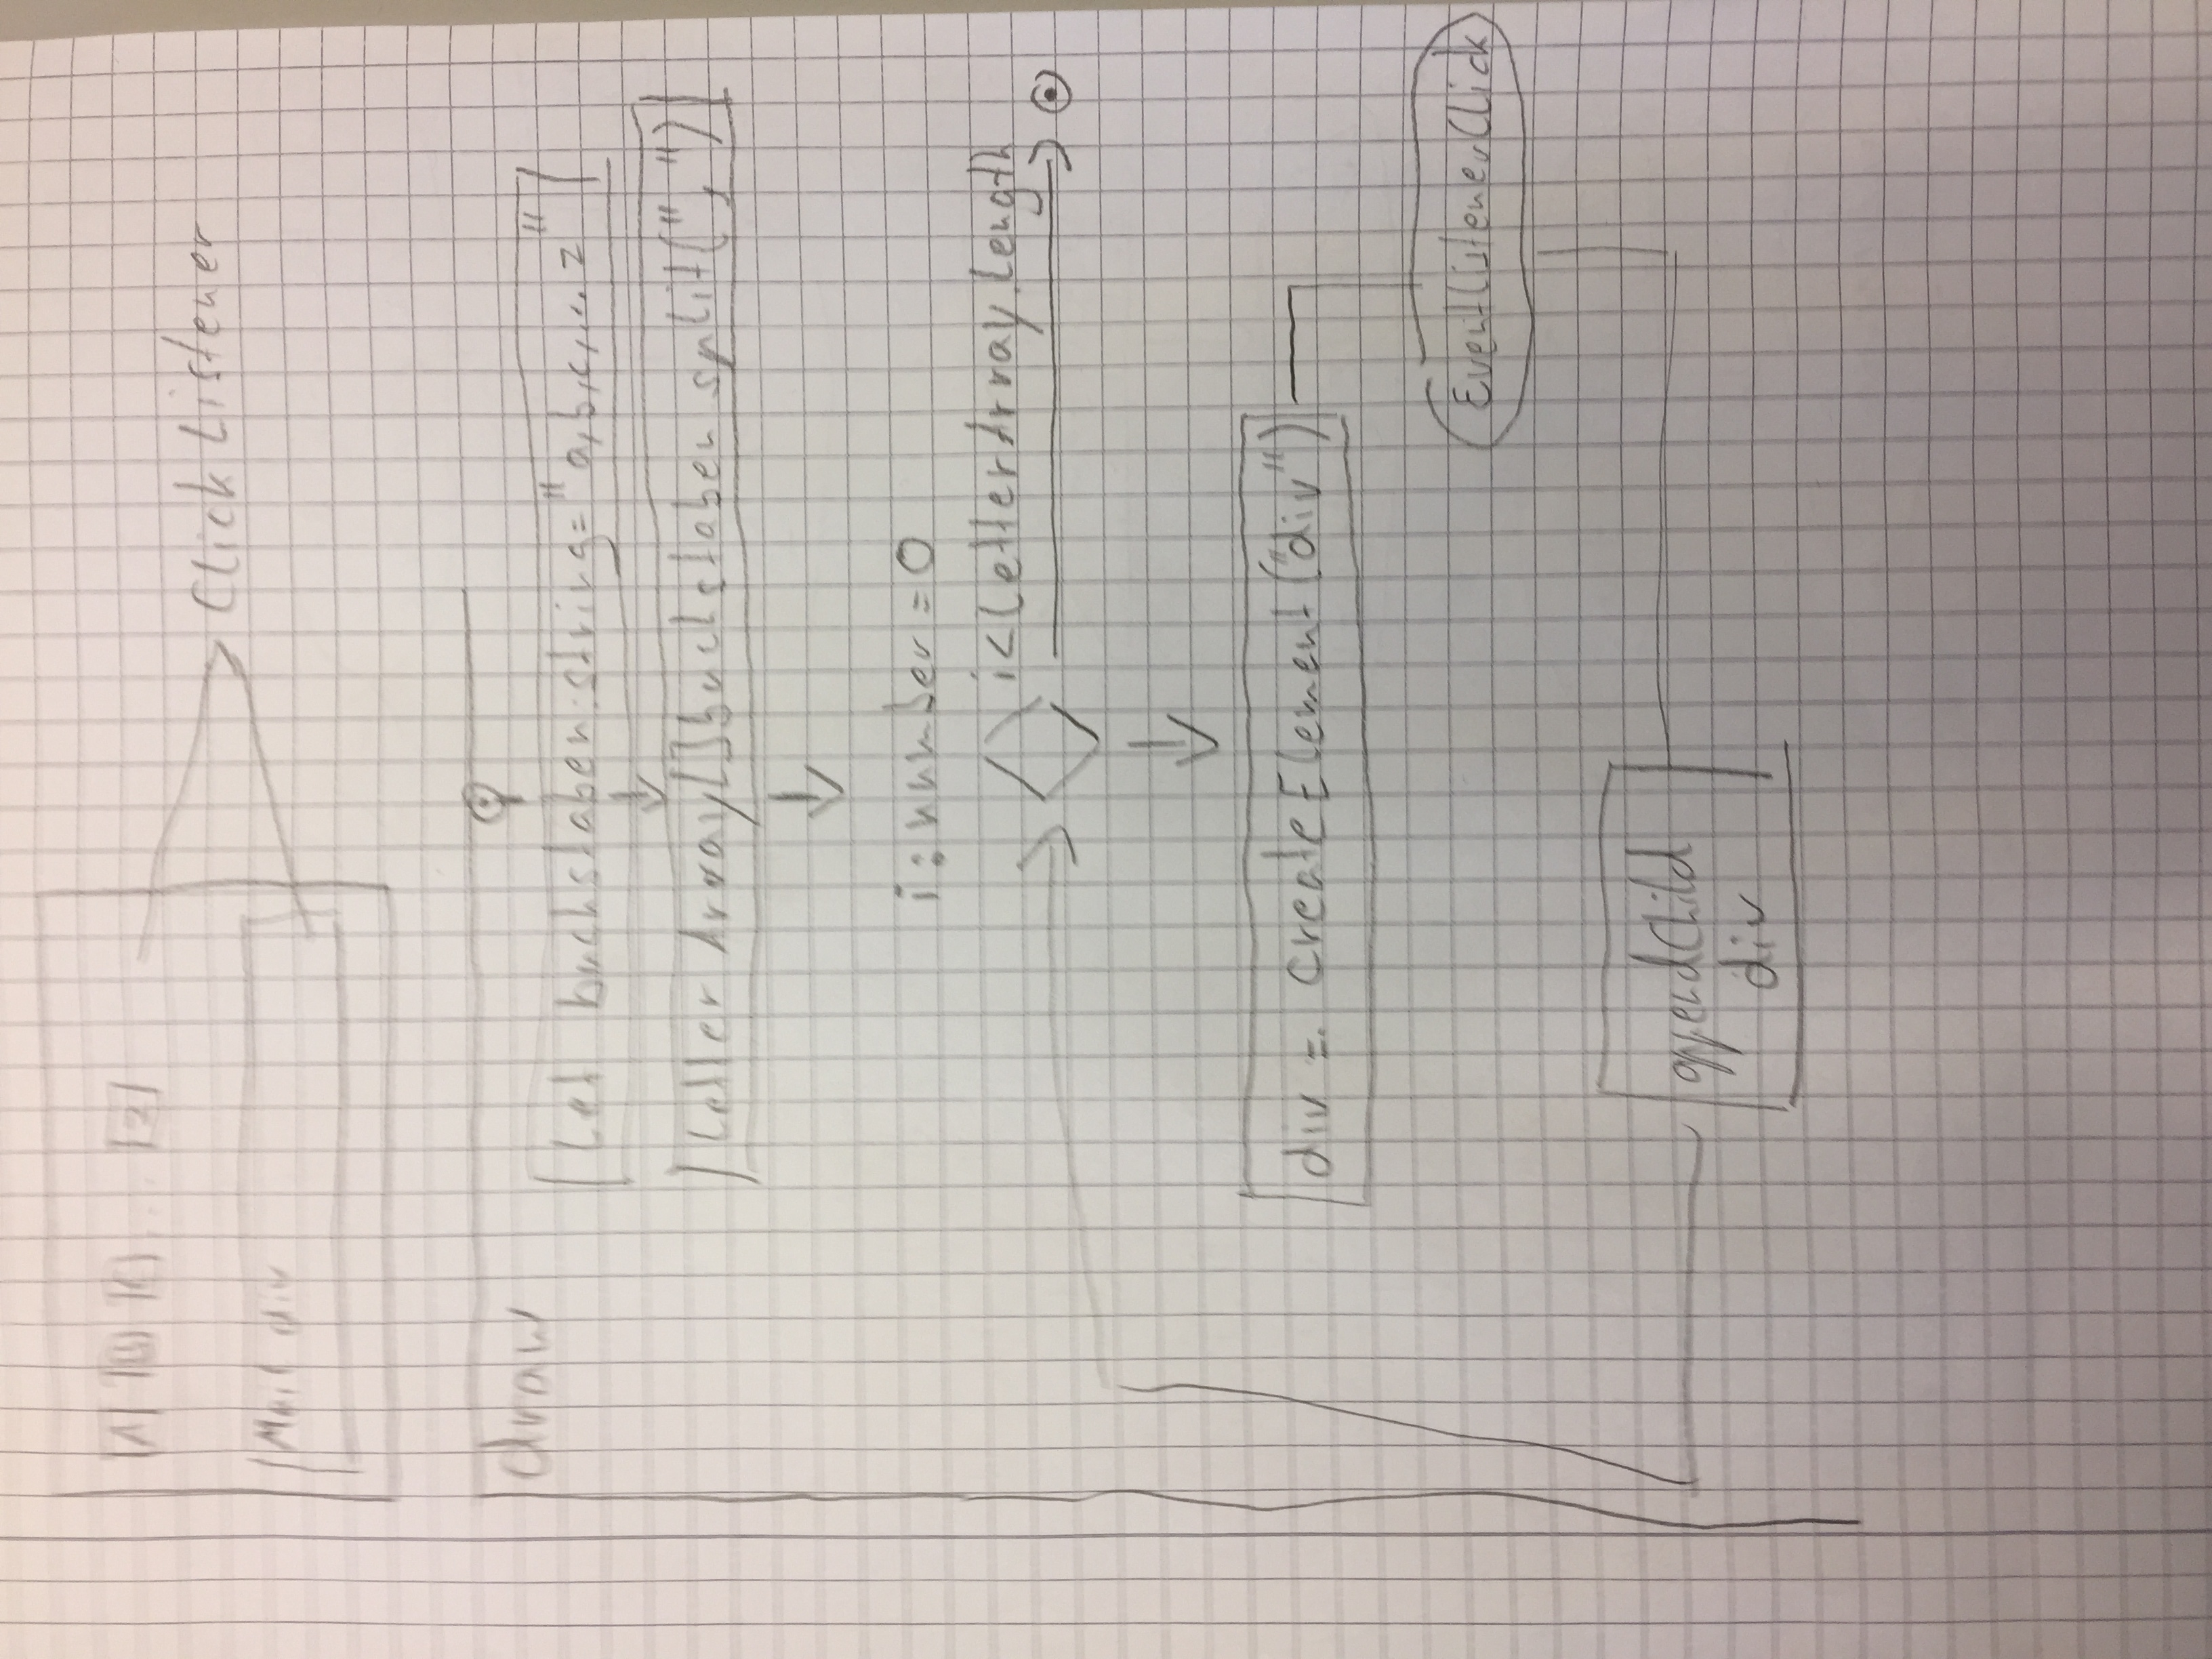 A B C ... Z
Click Listener
Mail div
draw
Let buchstaben:string="a,b,c,... z"
Letter Array[]buchstaben split(",")
i:number=0
i<LetterArray.length
div = createElement("div")
EventListenerClick
appendChild
div